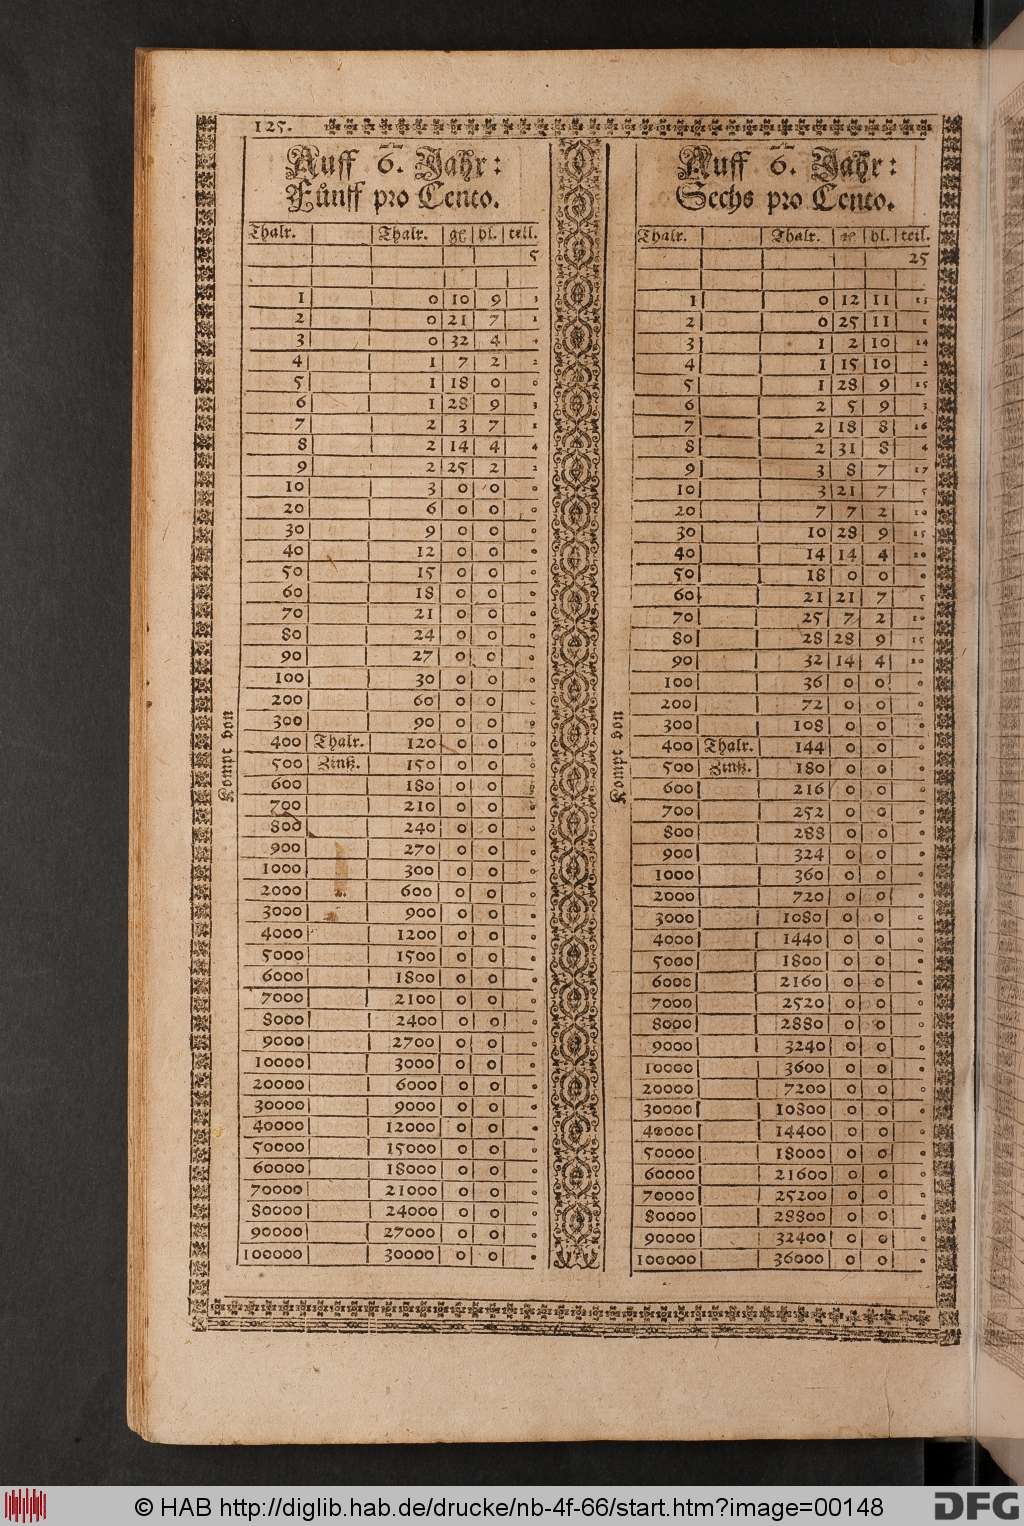 125.
Auff 6. Jahr:
Fünff pro Cento.
Thalr. | Thalr. | gl | hl. | teil.
5
1 | 0 | 10 | 9 | 3
2 | 0 | 21 | 7 | 1
3 | 0 | 32 | 4 | 4
4 | 1 | 7 | 2 | 2
5 | 1 | 18 | 0 | 0
6 | 1 | 28 | 9 | 3
7 | 2 | 3 | 7 | 1
8 | 2 | 14 | 4 | 4
9 | 2 | 25 | 2 | 2
10 | 3 | 0 | 0 | 0
20 | 6 | 0 | 0 | 0
30 | 9 | 0 | 0 | 0
40 | 12 | 0 | 0 | 0
50 | 15 | 0 | 0 | 0
60 | 18 | 0 | 0 | 0
70 | 21 | 0 | 0 | 0
80 | 24 | 0 | 0 | 0
90 | 27 | 0 | 0 | 0
100 | 30 | 0 | 0 | 0
200 | 60 | 0 | 0 | 0
300 | 90 | 0 | 0 | 0
Kompt von
400 | Thalr. | 120 | 0 | 0 | 0
500 | Zinß. | 150 | 0 | 0 | 0
600 | 180 | 0 | 0 | 0
700 | 210 | 0 | 0 | 0
800 | 240 | 0 | 0 | 0
900 | 270 | 0 | 0 | 0
1000 | 300 | 0 | 0 | 0
2000 | 600 | 0 | 0 | 0
3000 | 900 | 0 | 0 | 0
4000 | 1200 | 0 | 0 | 0
5000 | 1500 | 0 | 0 | 0
6000 | 1800 | 0 | 0 | 0
7000 | 2100 | 0 | 0 | 0
8000 | 2400 | 0 | 0 | 0
9000 | 2700 | 0 | 0 | 0
10000 | 3000 | 0 | 0 | 0
20000 | 6000 | 0 | 0 | 0
30000 | 9000 | 0 | 0 | 0
40000 | 12000 | 0 | 0 | 0
50000 | 15000 | 0 | 0 | 0
60000 | 18000 | 0 | 0 | 0
70000 | 21000 | 0 | 0 | 0
80000 | 24000 | 0 | 0 | 0
90000 | 27000 | 0 | 0 | 0
100000 | 30000 | 0 | 0 | 0
Auff 6. Jahr:
Sechs pro Cento.
Thalr. | Thalr. | gl | hl. | teil.
25
1 | 0 | 12 | 11 | 13
2 | 0 | 25 | 11 | 1
3 | 1 | 2 | 10 | 14
4 | 1 | 15 | 10 | 2
5 | 1 | 28 | 9 | 15
6 | 2 | 5 | 9 | 3
7 | 2 | 18 | 8 | 16
8 | 2 | 31 | 8 | 4
9 | 3 | 8 | 7 | 17
10 | 3 | 21 | 7 | 5
20 | 7 | 7 | 2 | 10
30 | 10 | 28 | 9 | 15
40 | 14 | 14 | 4 | 20
50 | 18 | 0 | 0 | 0
60 | 21 | 21 | 7 | 5
70 | 25 | 7 | 2 | 10
80 | 28 | 28 | 9 | 15
90 | 32 | 14 | 4 | 20
100 | 36 | 0 | 0 | 0
200 | 72 | 0 | 0 | 0
300 | 108 | 0 | 0 | 0
Kompt von
400 | Thalr. | 144 | 0 | 0 | 0
500 | Zinß. | 180 | 0 | 0 | 0
600 | 216 | 0 | 0 | 0
700 | 252 | 0 | 0 | 0
800 | 288 | 0 | 0 | 0
900 | 324 | 0 | 0 | 0
1000 | 360 | 0 | 0 | 0
2000 | 720 | 0 | 0 | 0
3000 | 1080 | 0 | 0 | 0
4000 | 1440 | 0 | 0 | 0
5000 | 1800 | 0 | 0 | 0
6000 | 2160 | 0 | 0 | 0
7000 | 2520 | 0 | 0 | 0
8000 | 2880 | 0 | 0 | 0
9000 | 3240 | 0 | 0 | 0
10000 | 3600 | 0 | 0 | 0
20000 | 7200 | 0 | 0 | 0
30000 | 10800 | 0 | 0 | 0
40000 | 14400 | 0 | 0 | 0
50000 | 18000 | 0 | 0 | 0
60000 | 21600 | 0 | 0 | 0
70000 | 25200 | 0 | 0 | 0
80000 | 28800 | 0 | 0 | 0
90000 | 32400 | 0 | 0 | 0
100000 | 36000 | 0 | 0 | 0
© HAB http://diglib.hab.de/drucke/nb-4f-66/start.htm?image=00148
DFG